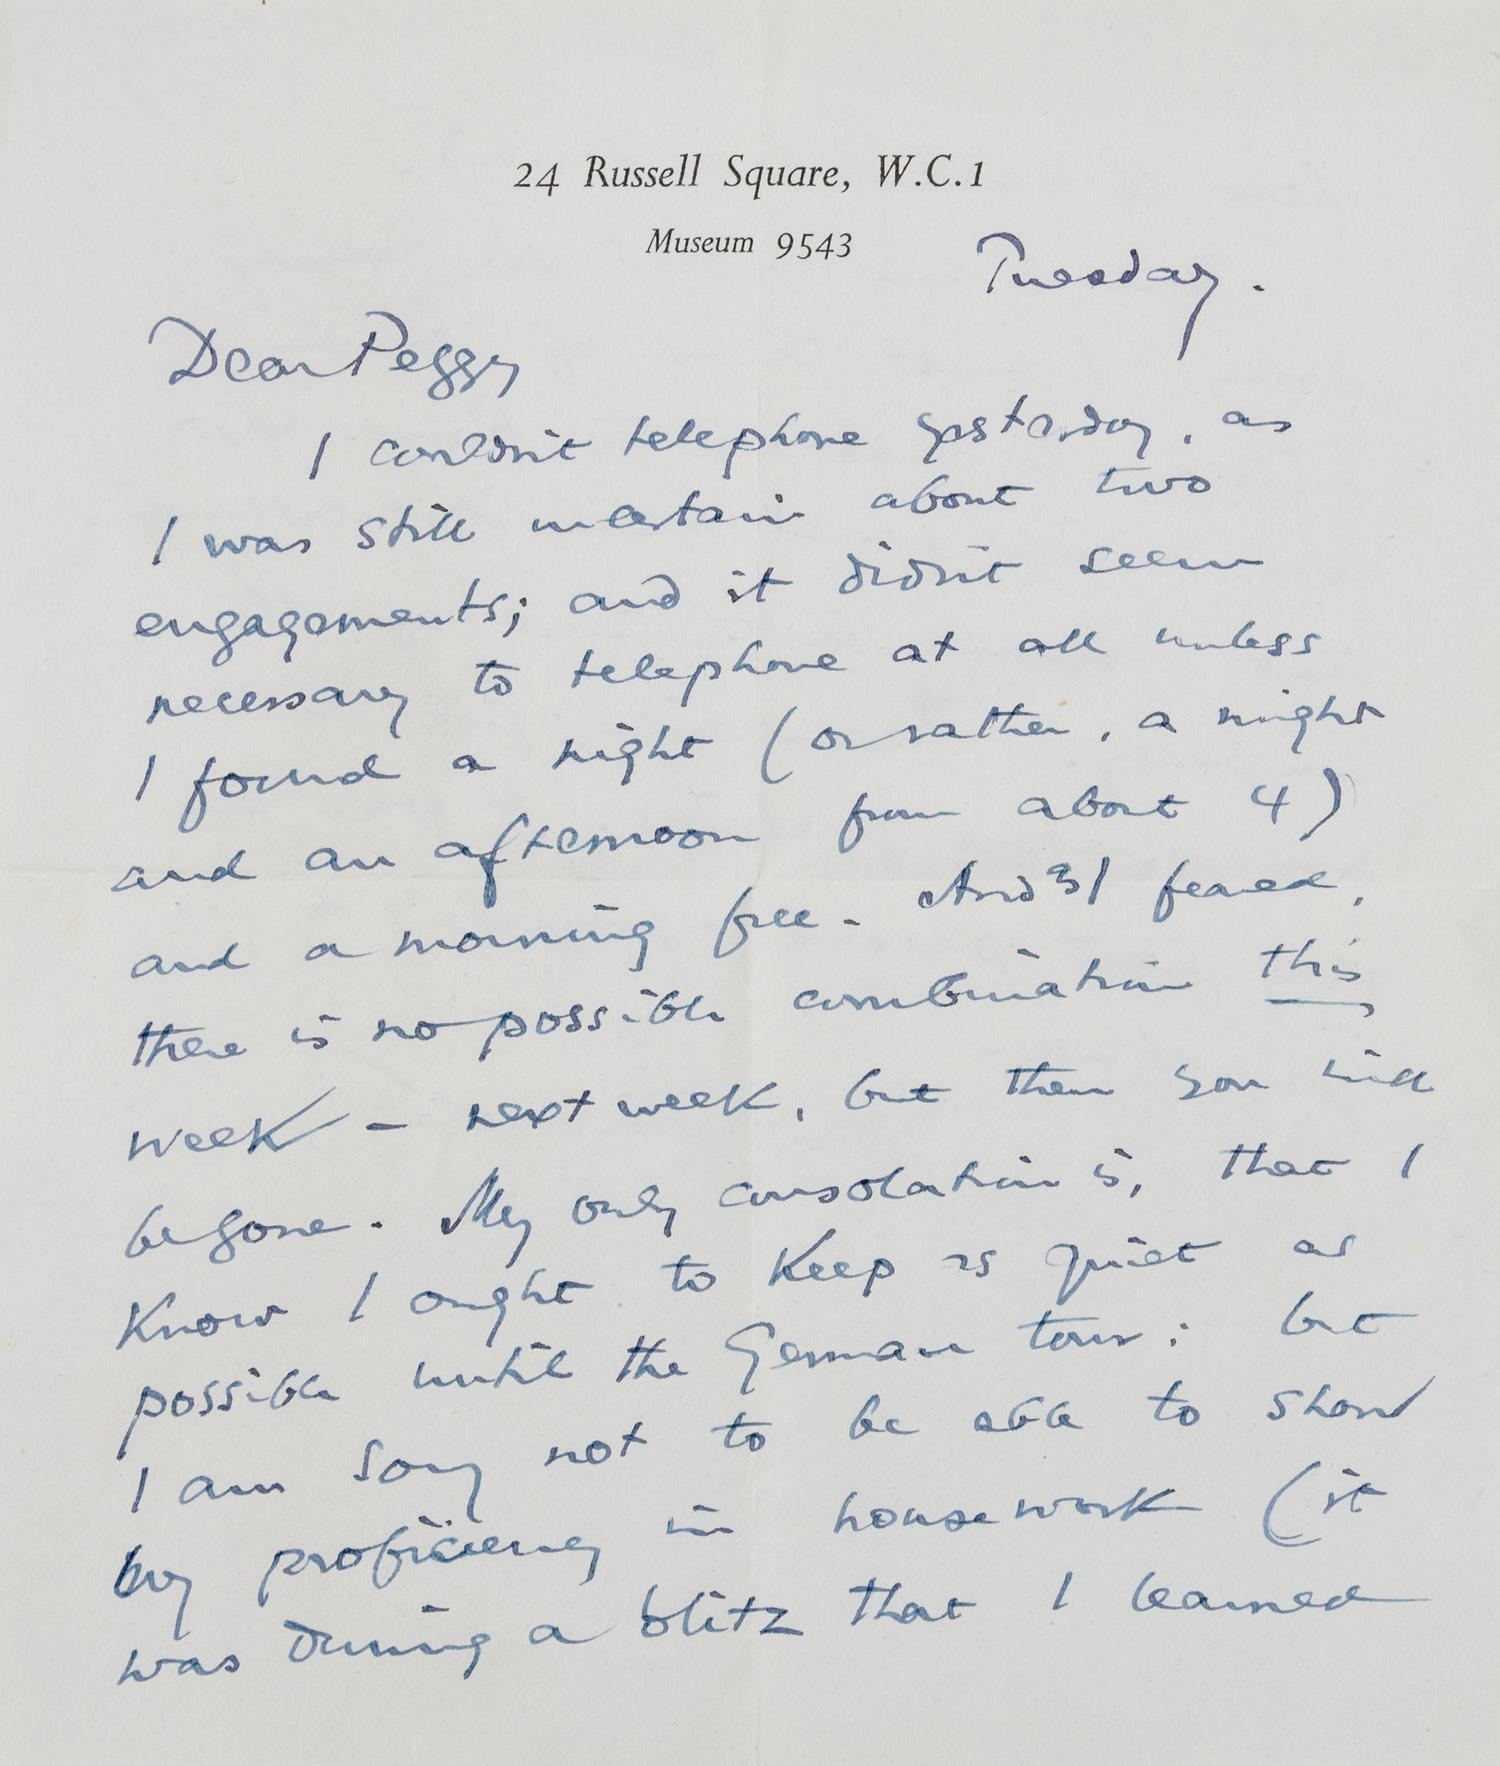 24 Russell Square, W.C.1
Museum 9543
Tuesday.
Dear Peggy
I couldn't telephone yesterday, as
I was still uncertain about two
engagements; and it didn't seem
necessary to telephone at all unless
I found a night (or rather, a night
and an afternoon from about 4)
and a morning free. And as I feared,
there is no possible combination this
week – next week, but then you will
be gone. My only consolation is, that I
know I ought to keep as quiet as
possible until the German tour: but
I am sorry not to be able to show
my proficiency in housework (it
was during a blitz that I learned